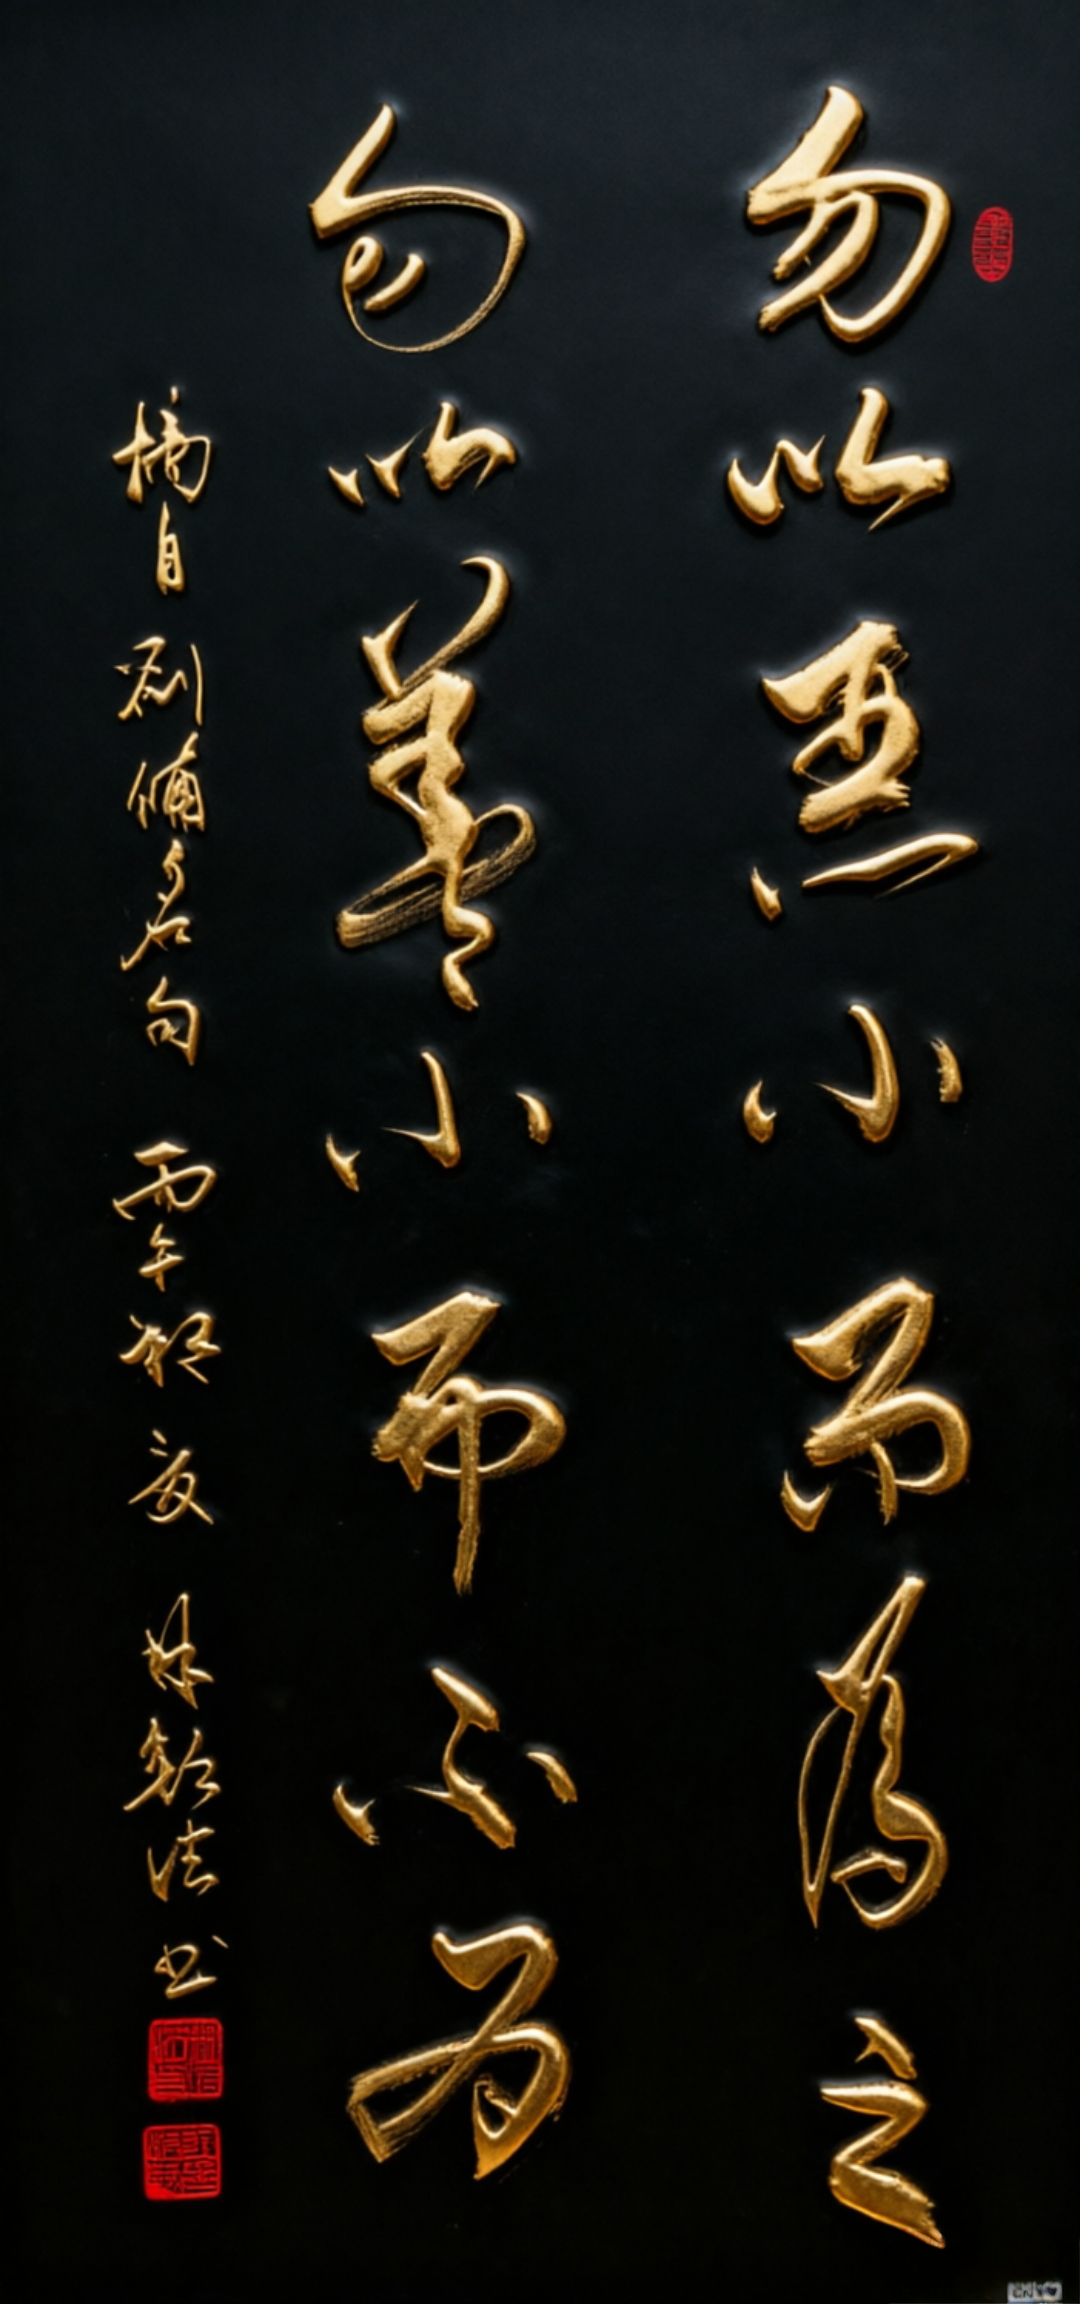 勿以恶小而为之
勿以善小而不为
摘自刘备名句 丙午初夏 林钦法书